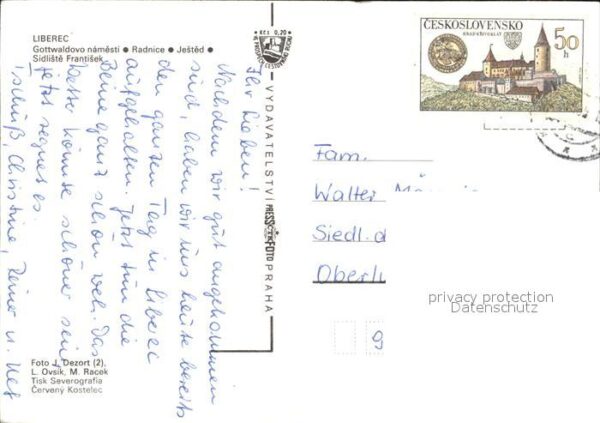 LIBEREC
Gottwaldovo náměstí ● Radnice ● Ještěd ●
Sídliště František
Kčs 0,20
ČESKOSLOVENSKO
HRAD KŘIVOKLÁT
50
h
Ihr Lieben!
Nachdem wir gut angekommen
sind, haben wir uns heute bereits
den ganzen Tag in Liberec
aufgehalten. Jetzt tun die
Beine ganz schön weh. Das
Wetter könnte schöner sein,
jetzt regnet es.
Tschüß, Christine, Reiner u.
VYDAVATELSTVÍ PRESSFOTO PRAHA
Fam.
Walter
Siedl. d
Oberl
9
privacy protection
Datenschutz
Foto J. Dezort (2),
L. Ovsík, M. Racek
Tisk Severografia
Červený Kostelec